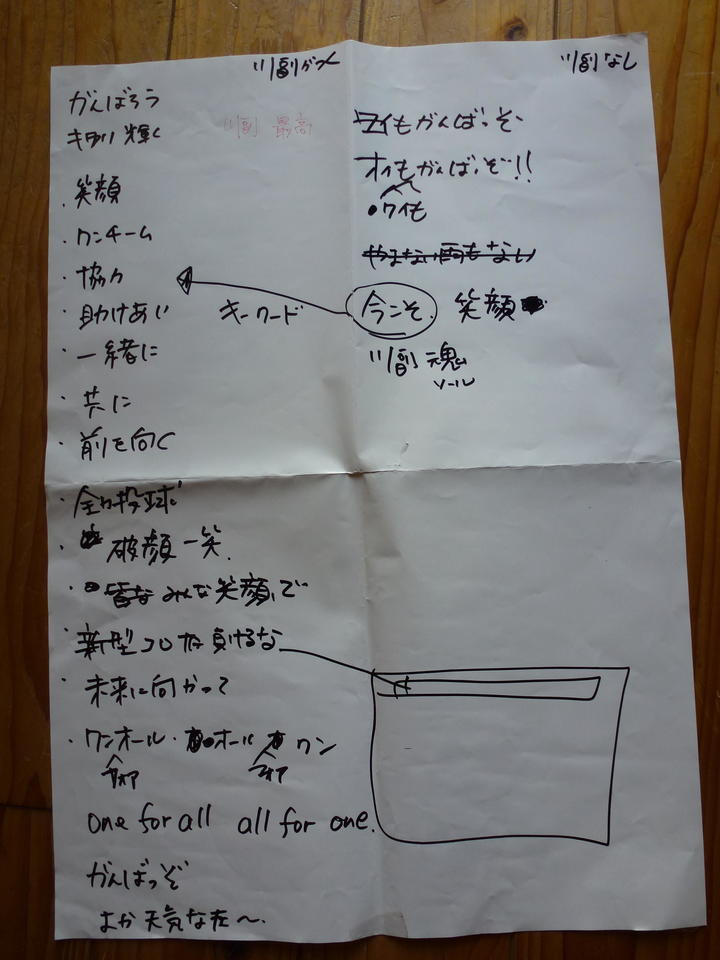 川副がメ
がんばろう
キラリ 輝く
川副 最高
・笑顔
・ワンチーム
・協力
・助けあい
・一緒に
・共に
・前を向く
・全力投球
・破顔一笑.
・皆な みんな笑顔で
・新型コロナ負けるな
・未来に向かって
・ワンオール・オール ワン
フォア
フォア
one for all all for one.
がんばっぞ
よか天気な在〜.
川副なし
ワイもがんばっぞ
オイもがんばっぞ!!
・ワイも
やまない雨もない
キーワード
今こそ. 笑顔
川副 魂
ソール